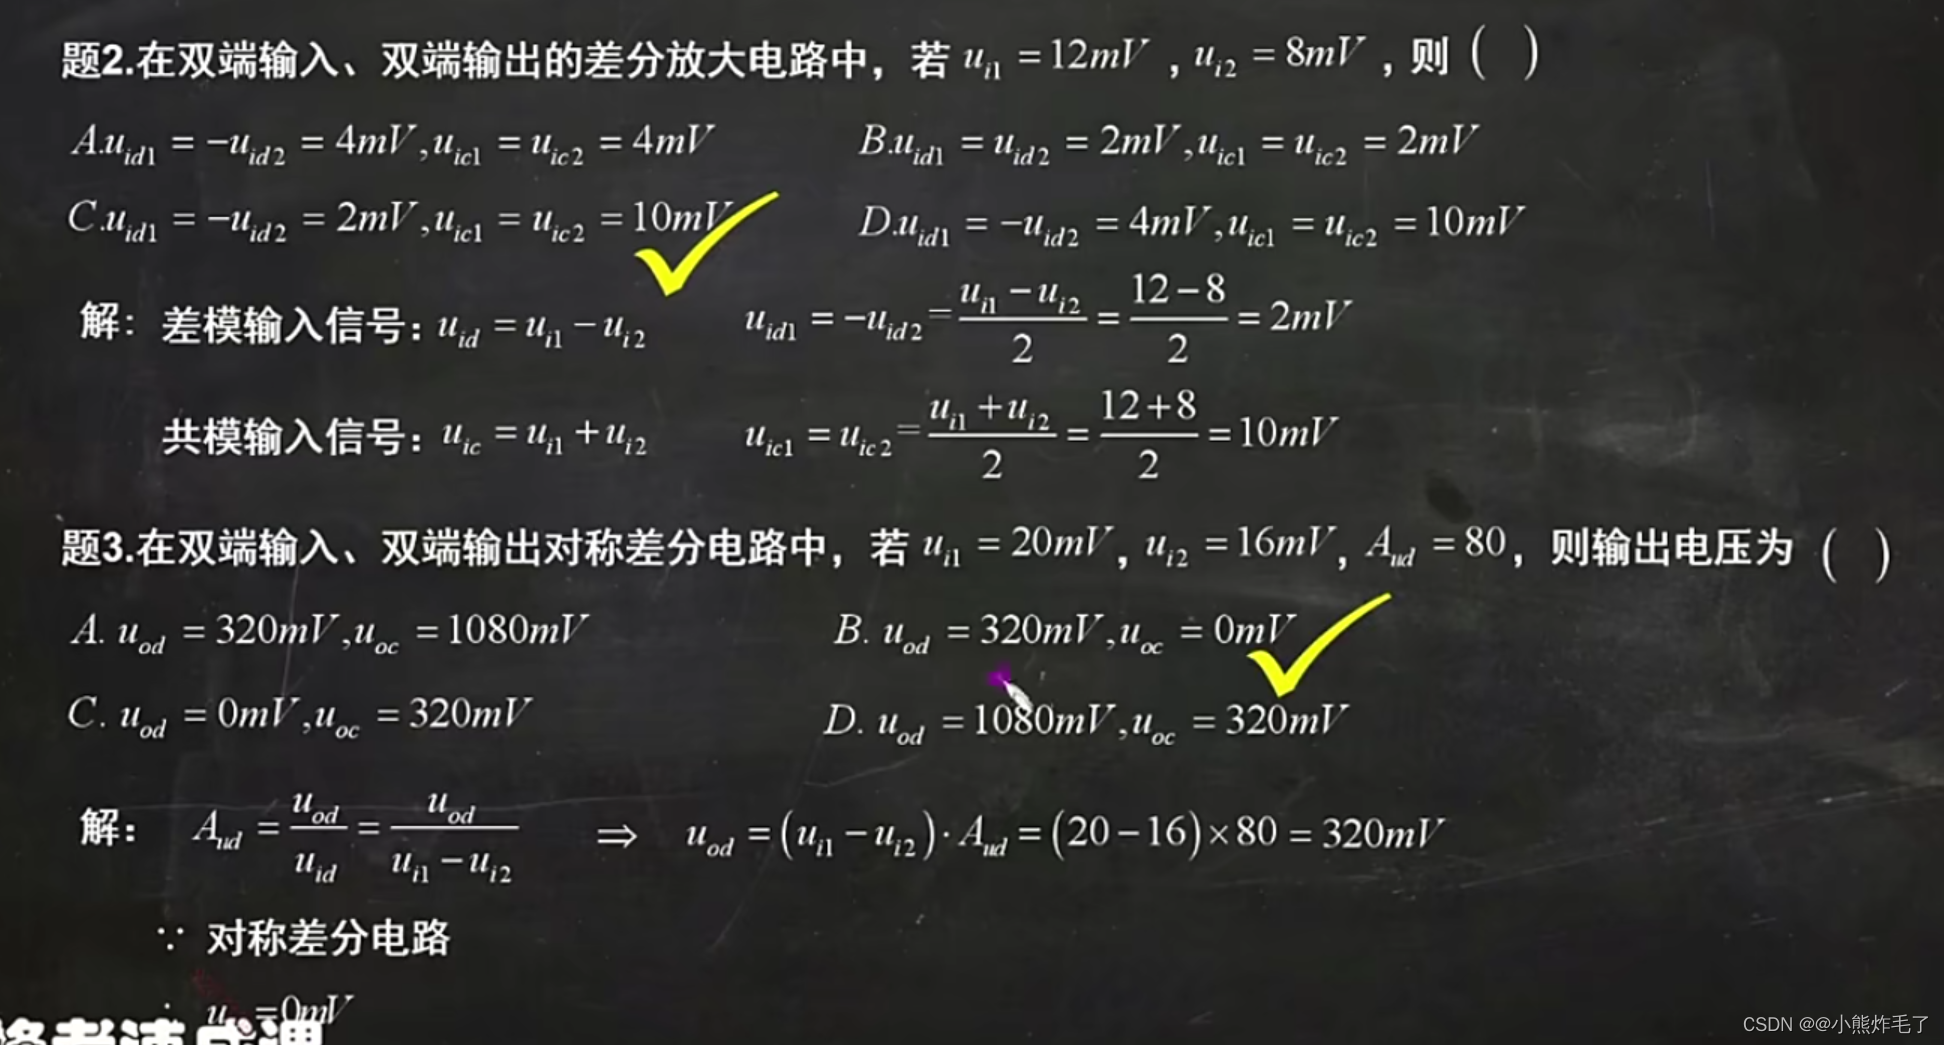 题2.在双端输入、双端输出的差分放大电路中，若 u_{i1} = 12mV，u_{i2} = 8mV，则 ( )
A.u_{id1} = -u_{id2} = 4mV,u_{ic1} = u_{ic2} = 4mV B.u_{id1} = u_{id2} = 2mV,u_{ic1} = u_{ic2} = 2mV
C.u_{id1} = -u_{id2} = 2mV,u_{ic1} = u_{ic2} = 10mV D.u_{id1} = -u_{id2} = 4mV,u_{ic1} = u_{ic2} = 10mV
解：差模输入信号：u_{id} = u_{i1} - u_{i2} u_{id1} = -u_{id2} = \frac{u_{i1} - u_{i2}}{2} = \frac{12-8}{2} = 2mV
共模输入信号：u_{ic} = u_{i1} + u_{i2} u_{ic1} = u_{ic2} = \frac{u_{i1} + u_{i2}}{2} = \frac{12+8}{2} = 10mV
题3.在双端输入、双端输出对称差分电路中，若 u_{i1} = 20mV，u_{i2} = 16mV，A_{ud} = 80，则输出电压为 ( )
A. u_{od} = 320mV,u_{oc} = 1080mV B. u_{od} = 320mV,u_{oc} = 0mV
C. u_{od} = 0mV,u_{oc} = 320mV D. u_{od} = 1080mV,u_{oc} = 320mV
解：A_{ud} = \frac{u_{od}}{u_{id}} = \frac{u_{od}}{u_{i1} - u_{i2}} ⇒ u_{od} = (u_{i1} - u_{i2})·A_{ud} = (20-16)×80 = 320mV
∵ 对称差分电路
∴ u =0mV
速成课
CSDN @@小熊炸毛了